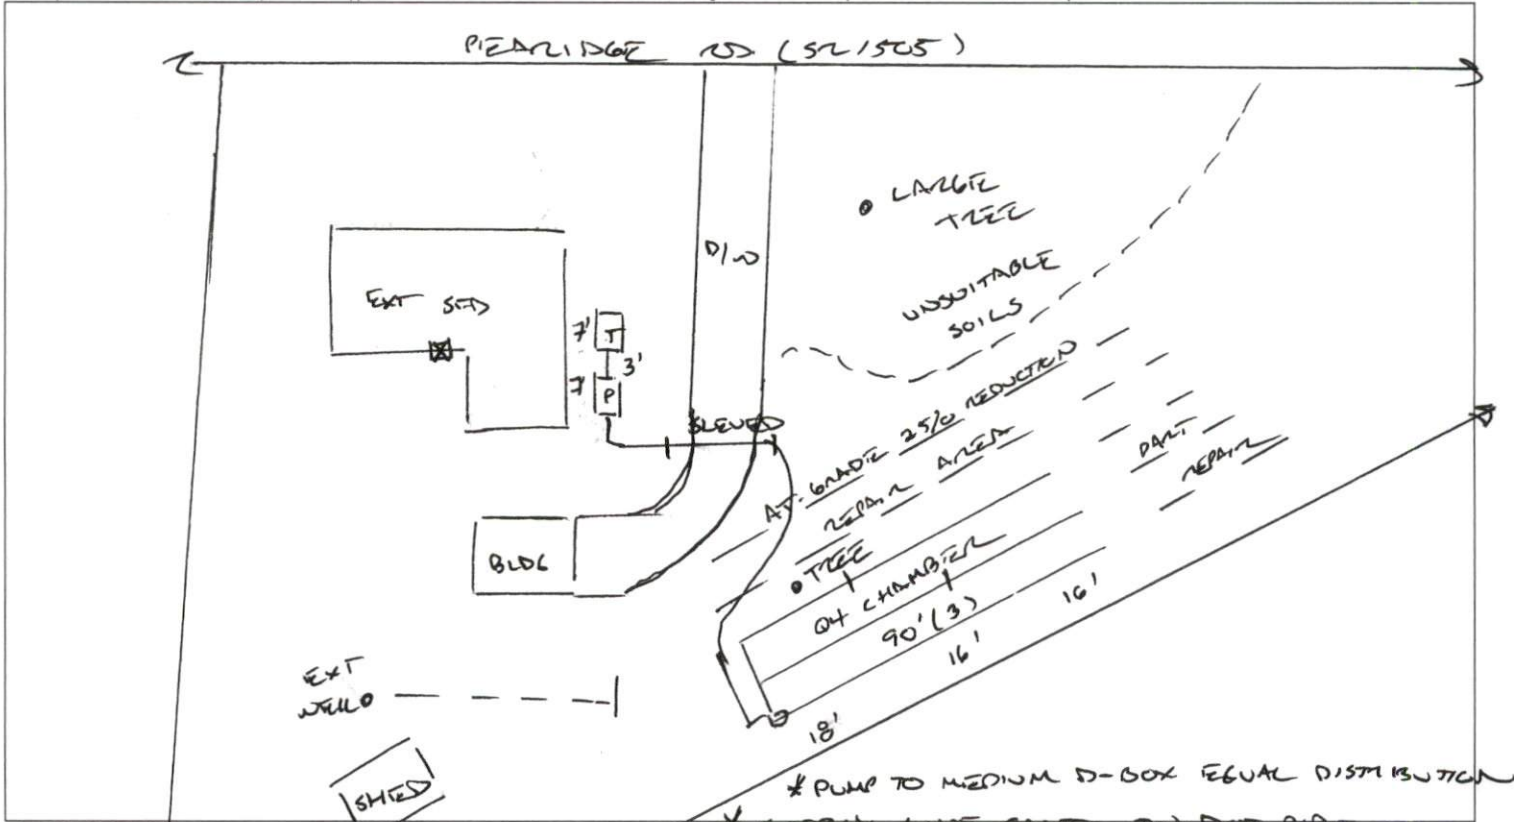 PEARIDGE RD (SR 1505)
LARGE
TREE
D/W
UNSUITABLE
SOILS
EXT SFD
7'
T
3'
7'
P
SLEVED
AT-GRADE 25% REDUCTION
REPAIR AREA
PART
REPAIR
TREE
BLDG
Q4 CHAMBER
90' (3)
16'
16'
EXT
WELL
18'
SHED
* PUMP TO MEDIUM D-BOX EQUAL DISTRIBUTION